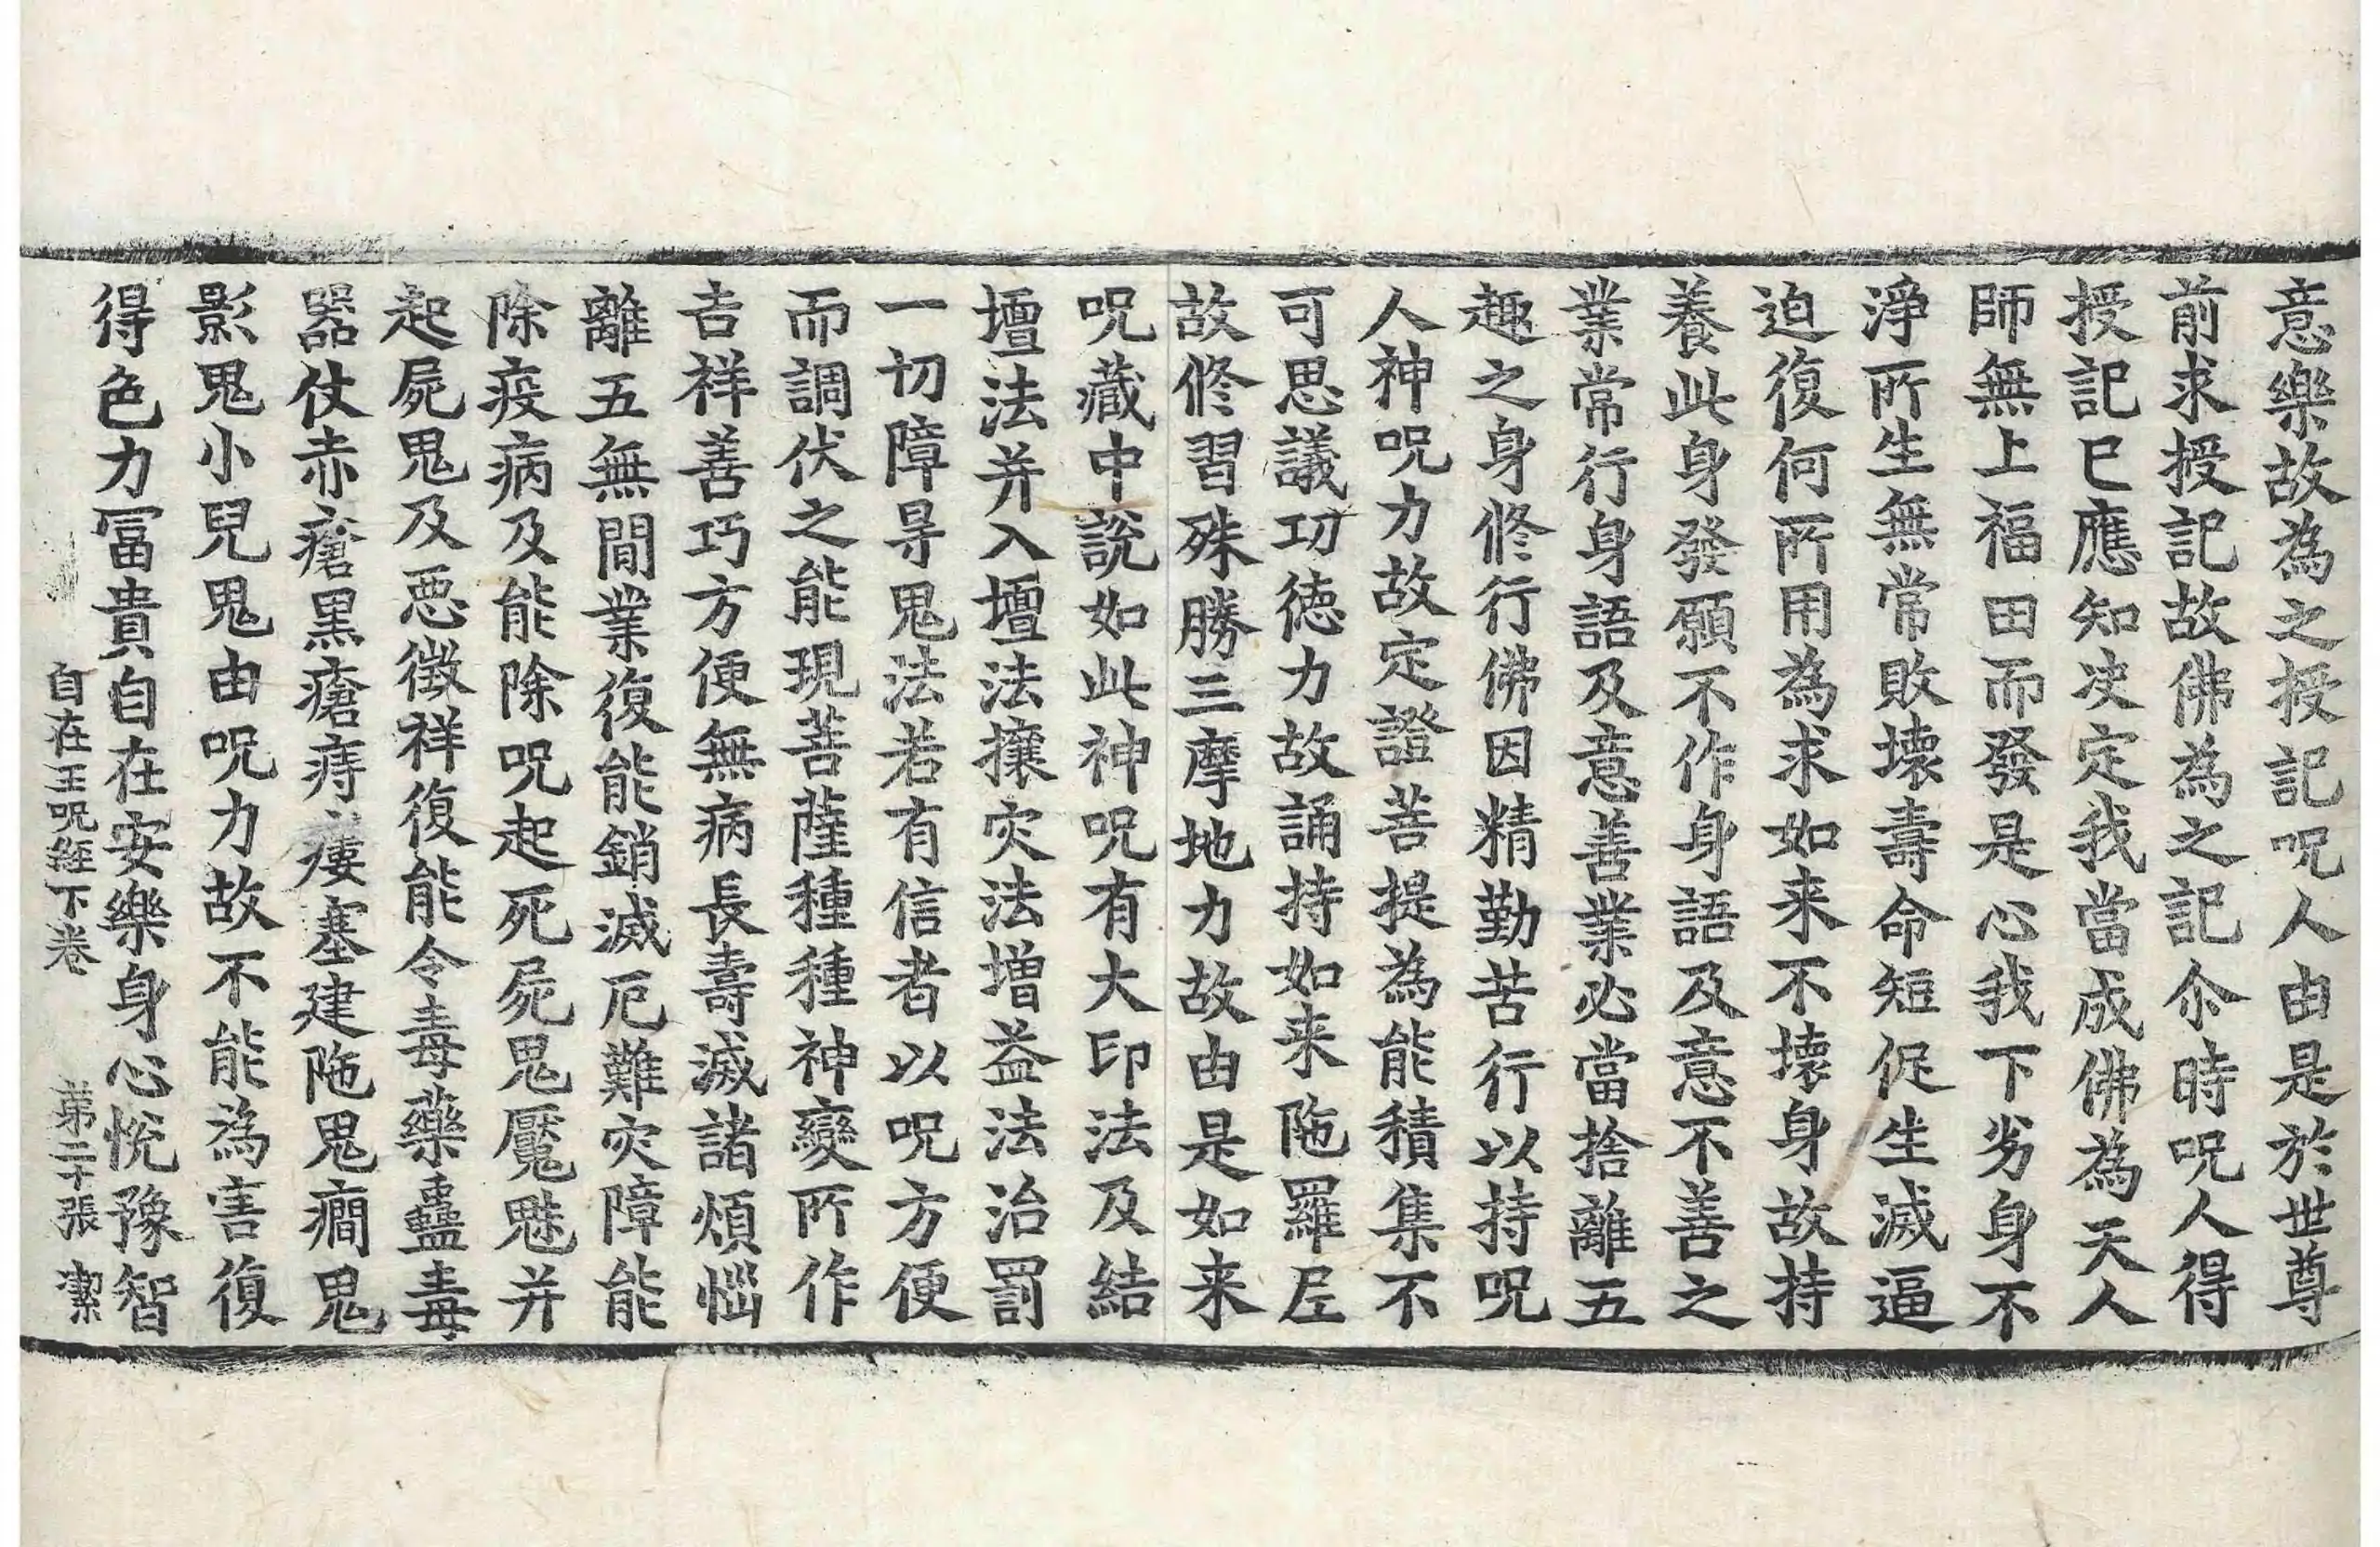 意樂故為之授記呪人由是於世尊
前求授記故佛為之記尒時呪人得
授記已應知決定我當成佛為天人
師無上福田而發是心我下劣身不
淨所生無常敗壞壽命短促生滅逼
迫復何所用為求如来不壞身故持
養此身發願不作身語及意不善之
業常行身語及意善業必當捨離五
趣之身修行佛因精勤苦行以持呪
人神呪力故定證菩提為能積集不
可思議功德力故誦持如来陁羅尼
故修習殊勝三摩地力故由是如来
呪藏中說如此神呪有大印法及結
壇法并入壇法攘灾法增益法治罰
一切障㝵鬼法若有信者以呪方便
而調伏之能現菩薩種種神變所作
吉祥善巧方便無病長壽滅諸煩惱
離五無間業復能銷滅厄難灾障能
除疫病及能除呪起死屍鬼魘魅并
起屍鬼及惡徵祥復能令毒藥蠱毒
器仗赤瘡黑瘡痔瘻塞建陁鬼癎鬼
影鬼小兒鬼由呪力故不能為害復
得色力冨貴自在安樂身心悅豫智
自在王呪經下卷 第二十張 潔